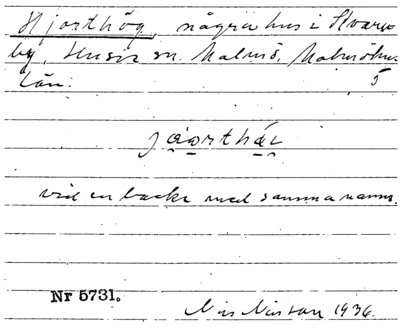 Hjorthög, några hus i Kvarn-
by, Husie sn. Malmö, Malmöhus
län. 5
vid en backe med samma namn.
Nr 5731.
Nils Nilsson 1936